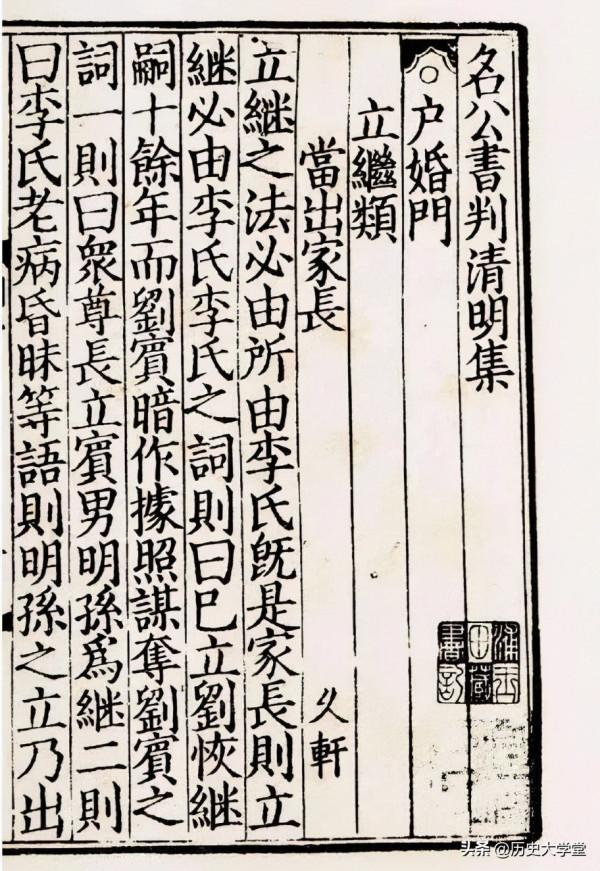 名公書判清明集
户婚門
立繼類
當出家長　久軒
立継之法必由所由李氏旣是家長則立
継必由李氏李氏之詞則曰已立劉恢継
嗣十餘年而劉賓暗作據照謀奪劉賓之
詞一則曰衆尊長立賓男明孫爲継二則
曰李氏老病昏昧等語則明孫之立乃出
浦玉田藏書記
头条 @历史大学堂